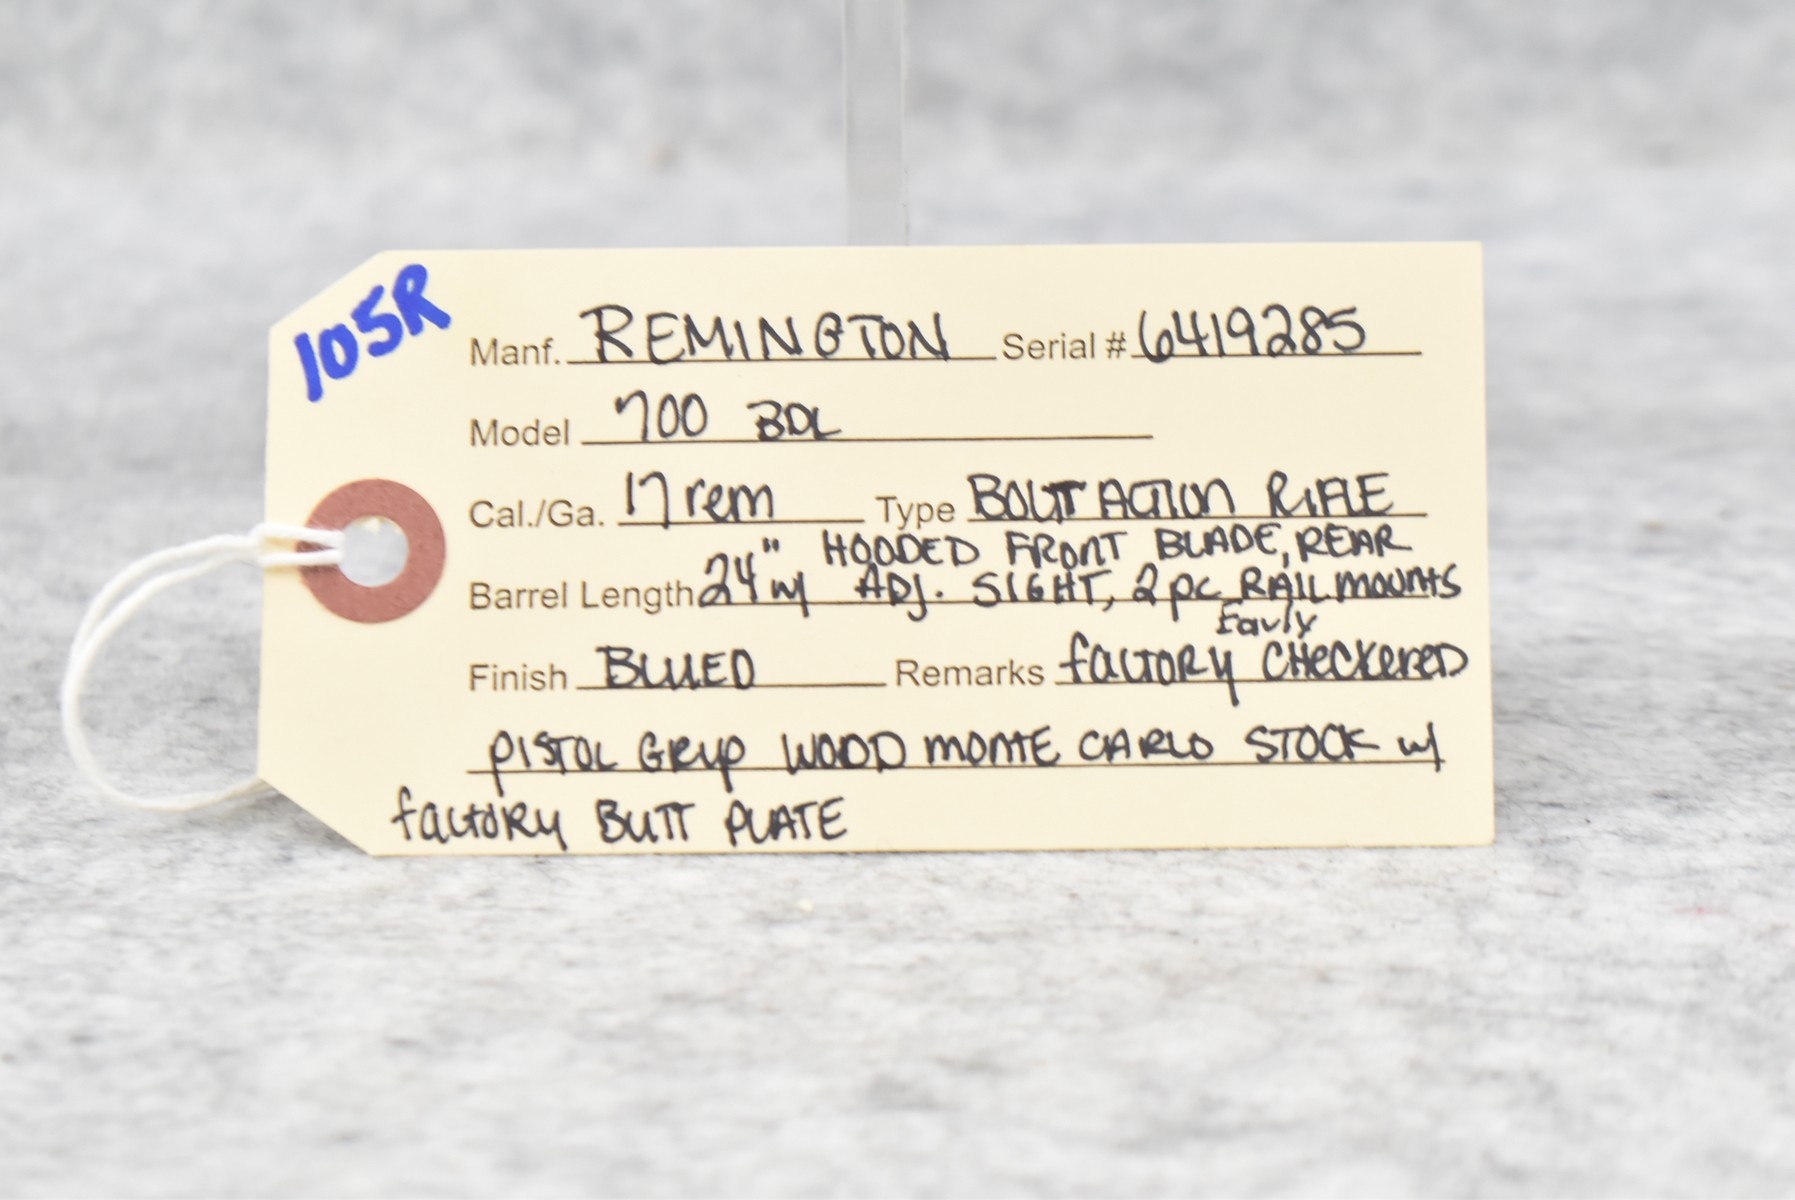 105R
Manf. REMINGTON Serial # 6419285
Model 700 BDL
Cal./Ga. 17 rem Type BOLT ACTION RIFLE
HOODED FRONT BLADE, REAR
Barrel Length 24" w/ ADJ. SIGHT, 2 pc RAIL mounts
Early
Finish BLUED Remarks factory CHeckereD
PISTOL GRIP WOOD MONTE CARLO STOCK w/
factory BUTT PLATE